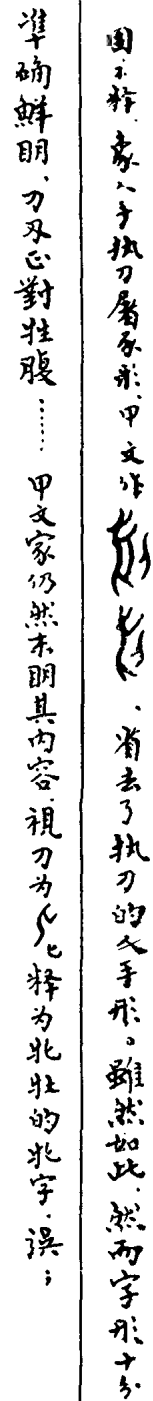 图示释，象人手执刀屠豕形，甲文作、省去了执刀的人手形。雖然如此，然而字形十分
準确鮮明，刀刃正對牲腹……甲文家仍然未明其内容，視刀为匕釋为牝牡的牝字，誤；